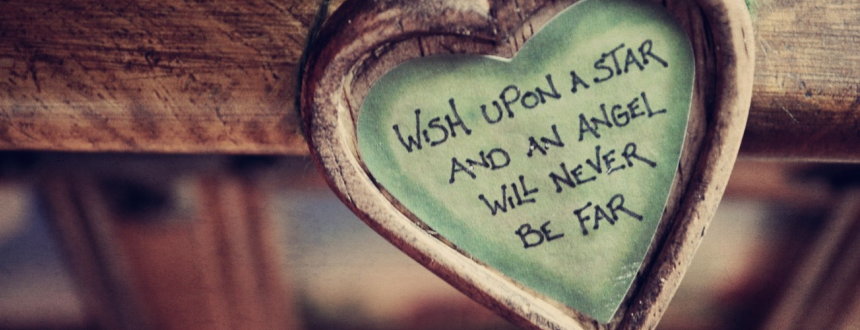 WISH UPON A STAR
AND AN ANGEL
WILL NEVER
BE FAR